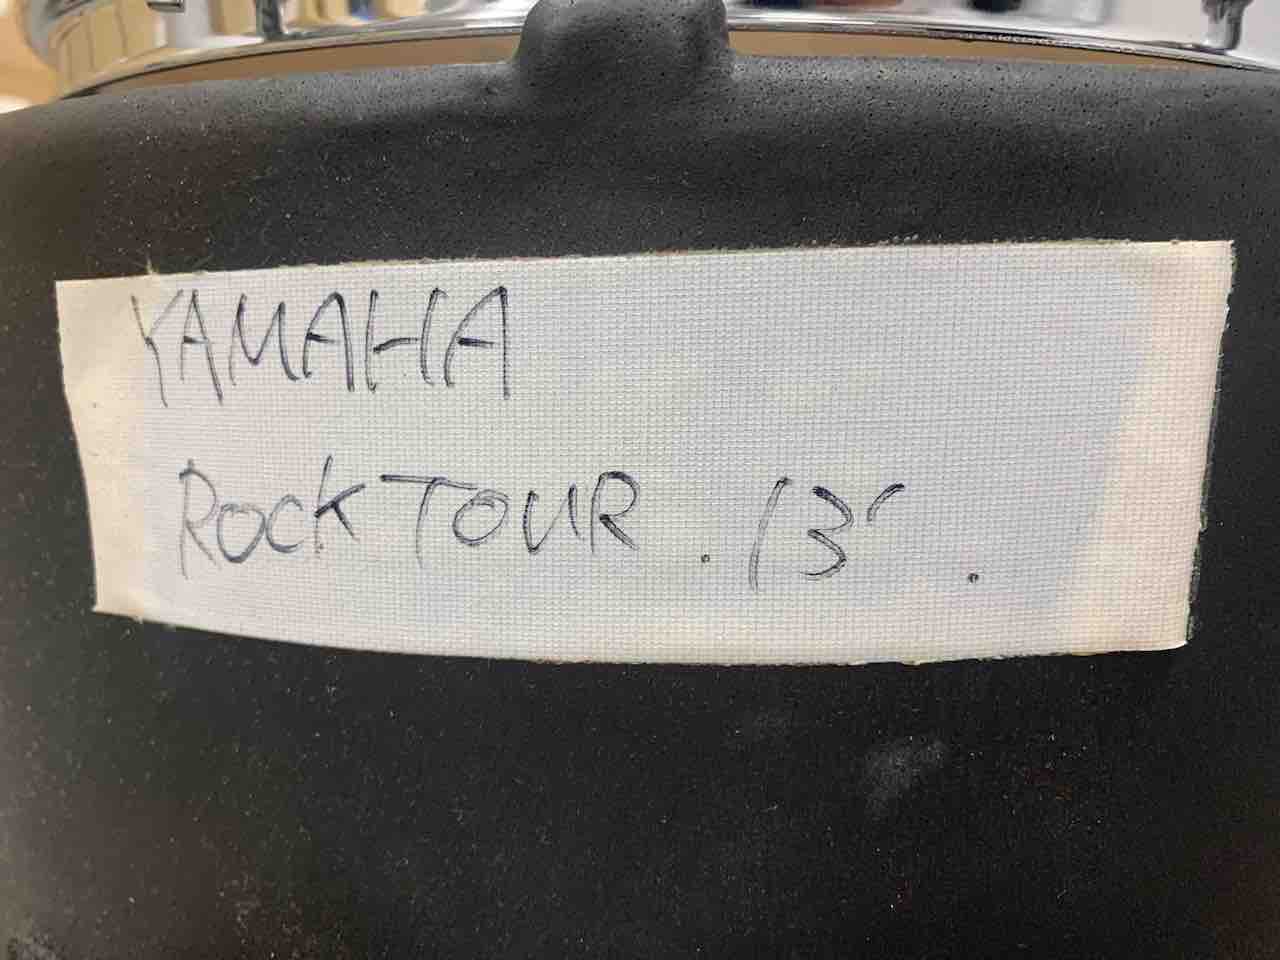 YAMAHA
ROCK TOUR . 13" .